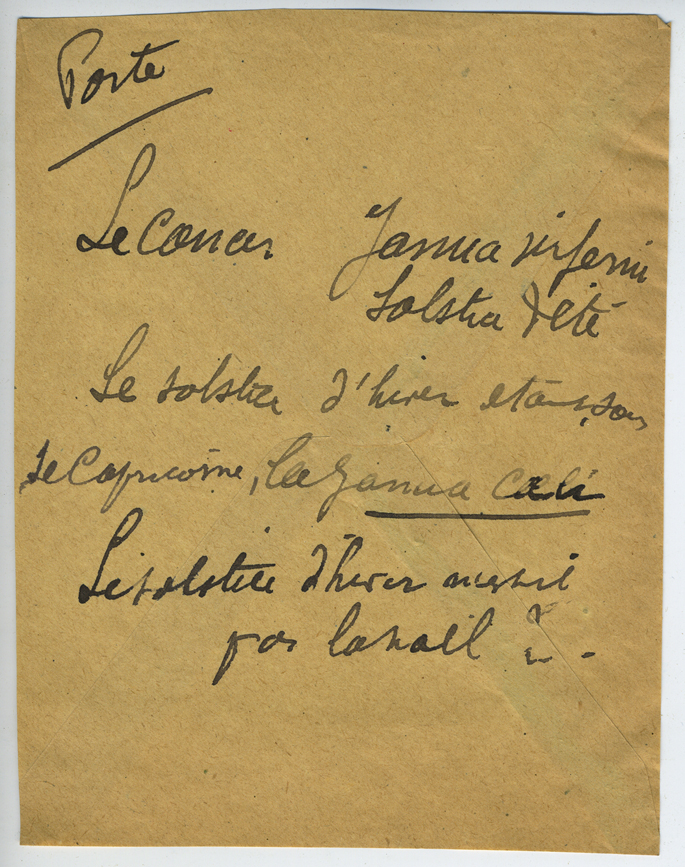 Porte
Le Cancer Janua inferni
Solstice d'été
Le solstice d'hiver étant, sous
le Capricorne, la Janua cœli
Le solstice d'hiver n'est-il
pas la noël ? .